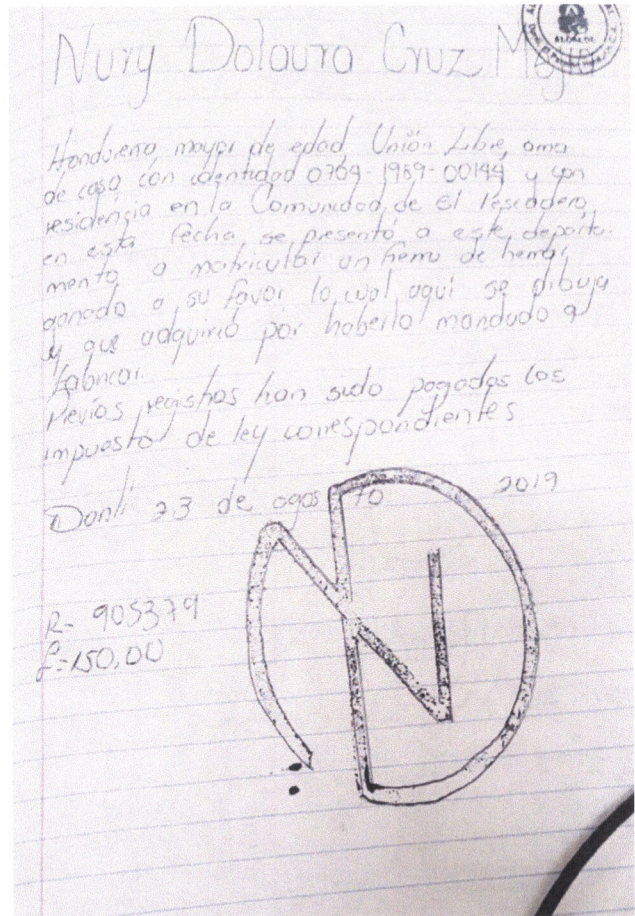 Nury Dolaura Cruz Mejía
ALCALDE
Hondureña mayor de edad, Unión Libre, ama
de casa con identidad 0704-1989-00144 y con
residencia en la Comunidad de El Pescadero,
en esta fecha se presentó a este departa-
mento a matricular un fierro de herrar
ganado a su favor lo cual aquí se dibuja
y que adquirió por haberlo mandado a
fabricar.
Previas registros han sido pagados los
impuesto de ley correspondientes
Danlí 23 de agosto 2019
R- 905379
L=150.00